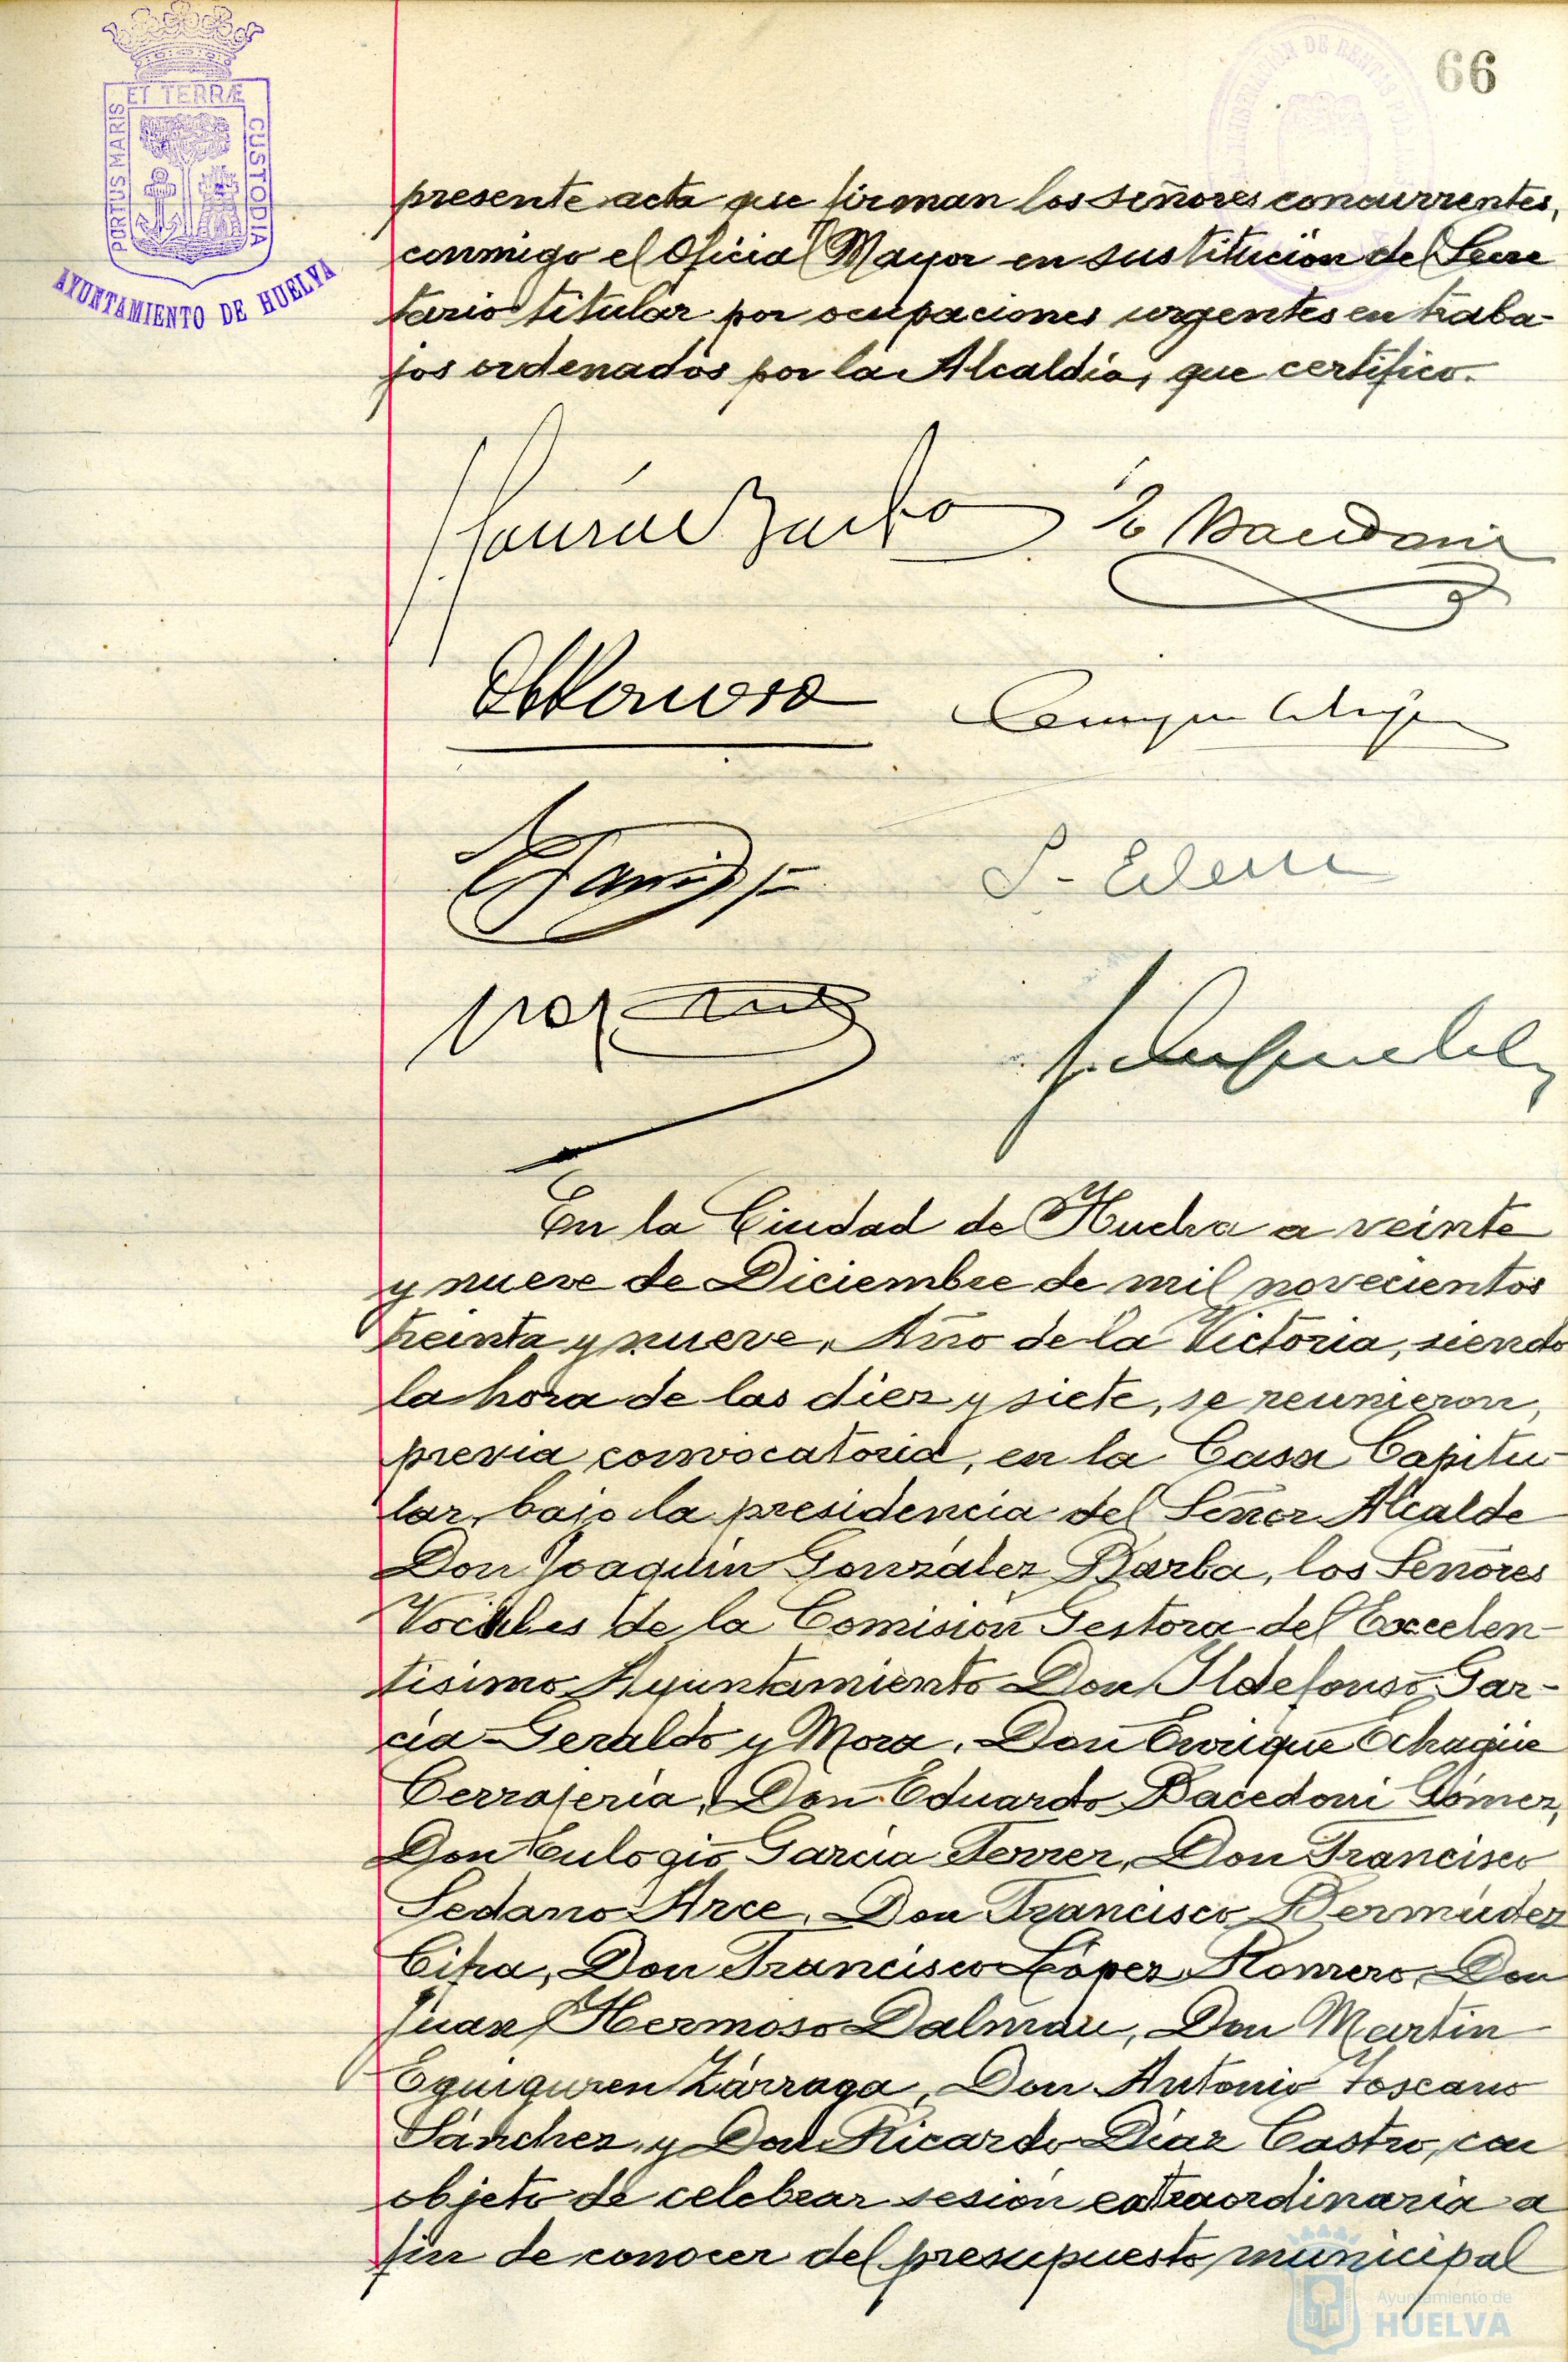 66
ET TERRÆ
PORTUS MARIS
CUSTODIA
AYUNTAMIENTO DE HUELVA
DE RENTAS
presente acta que firman los señores concurrentes,
conmigo el Oficial Mayor en sustitución del Secre
tario titular por ocupaciones urgentes en traba-
jos ordenados por la Alcaldía, que certifico.
En la Ciudad de Huelva a veinte
y nueve de Diciembre de mil novecientos
treinta y nueve, Año de la Victoria, siendo
la hora de las diez y siete, se reunieron,
previa convocatoria, en la Casa Capitu-
lar, bajo la presidencia del Señor Alcalde
Don Joaquín González Barba, los Señores
Vocales de la Comisión Gestora del Excelen-
tísimo Ayuntamiento Don Ildefonso Gar-
cía-Geraldo y Mora, Don Enrique Echagüe
Cerrajería, Don Eduardo Bacedoni Gómez,
Don Eulogio García Ferrer, Don Francisco
Sedano Arce, Don Francisco Bermúdez
Cifra, Don Francisco López Romero, Don
Juan Hermoso Dalmau, Don Martín
Eguiguren Zárraga, Don Antonio Toscano
Sánchez, y Don Ricardo Díaz Castro, con
objeto de celebrar sesión extraordinaria a
fin de conocer del presupuesto municipal
Ayuntamiento de
HUELVA